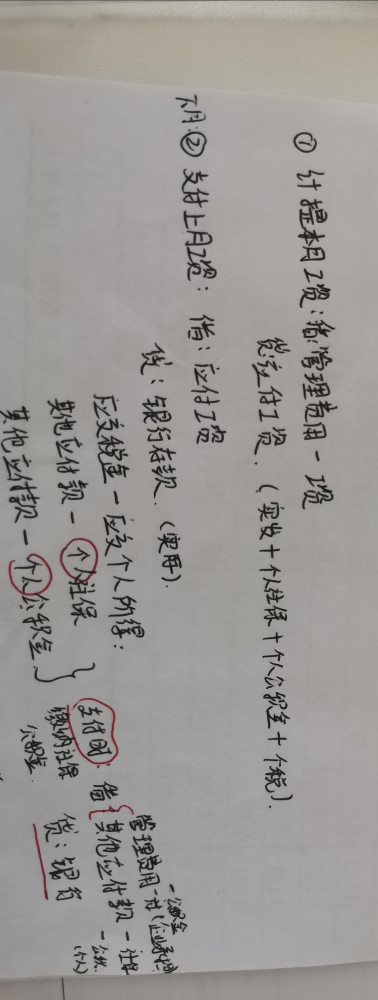 ① 计提本月工资：借：管理费用－工资
贷：应付工资.（实发＋个人社保＋个人公积金＋个税）.
下月：② 支付上月工资： 借：应付工资
贷：银行存款.（实际）.
应交税金－应交个人所得：
其他应付款－个人社保
其他应付款－个人公积金 }
支付时： 借{ 管理费用－社（企业
－公积金
缴纳社保 其他应付款－社保
公积金 －公积
（个人）
贷：银行